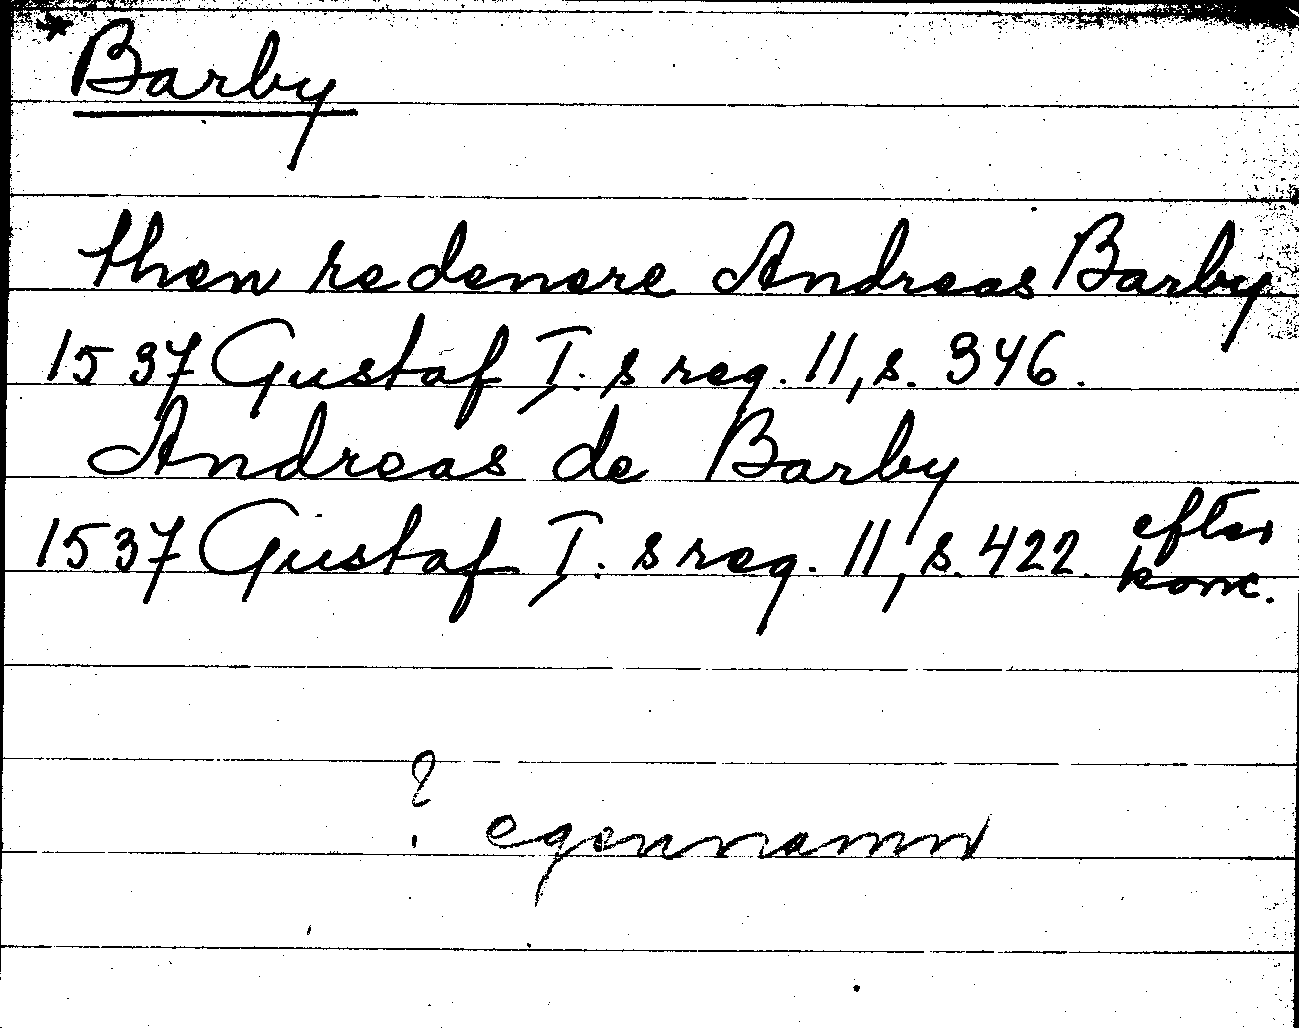 * Barby
then redenere Andreas Barby
1537 Gustaf I:s reg. 11, s. 346.
Andreas de Barby
1537 Gustaf I:s reg. 11, s. 422. efter
konc.
? egennamn